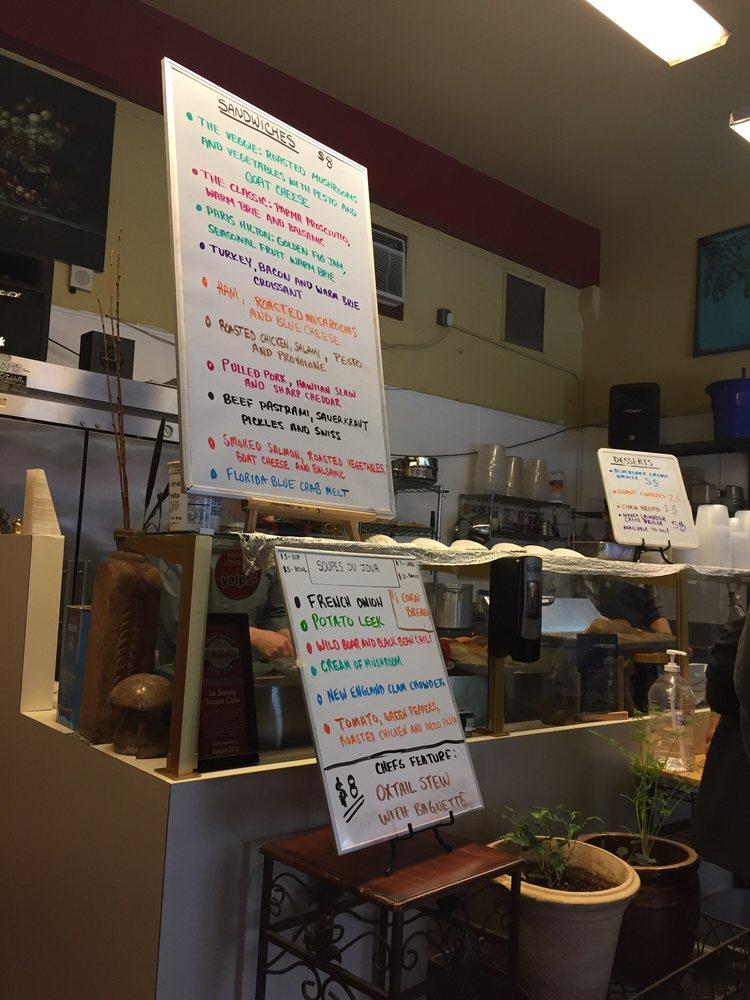 SANDWICHES
$8
• THE VEGGIE: ROASTED MUSHROOMS
AND VEGETABLES WITH PESTO AND
GOAT CHEESE
• THE CLASSIC: PARMA PROSCIUTTO,
WARM BRIE AND BALSAMIC
• PARIS HILTON: GOLDEN FIG JAM,
SEASONAL FRUIT WARM BRIE
• TURKEY, BACON AND WARM BRIE
CROISSANT
• HAM, ROASTED MUSHROOMS
AND BLUE CHEESE
• ROASTED CHICKEN, SALAMI, PESTO
AND PROVOLONE
• PULLED PORK, HAWIIAN SLAW
AND SHARP CHEDDAR
• BEEF PASTRAMI, SAUERKRAUT
PICKLES AND SWISS
• SMOKED SALMON, ROASTED VEGETABLES
GOAT CHEESE AND BALSAMIC
• FLORIDA BLUE CRAB MELT
$3 - CUP
$5 - BOWL
SOUPES DU JOUR
• FRENCH ONION
$1 CORN
BREAD
• POTATO LEEK
• WILD BOAR AND BLACK BEAN CHILI
• CREAM OF MUSHROOM
• NEW ENGLAND CLAM CHOWDER
• TOMATO, GREEN PEPPERS,
ROASTED CHICKEN AND ORZO PASTA
CHEFS FEATURE:
$8
OXTAIL STEW
WITH BAGUETTE
DESSERTS
• BLUEBERRY CREME
BRULEE 5$
COOKIES 2$
• CORN BREAD 1$
• HONEY LAVENDER
CREME BRULEE 5$
AVAILABLE TO-GO!
PEOPLE
LOVE US
yelp
La Bonne
Soupe Cafe